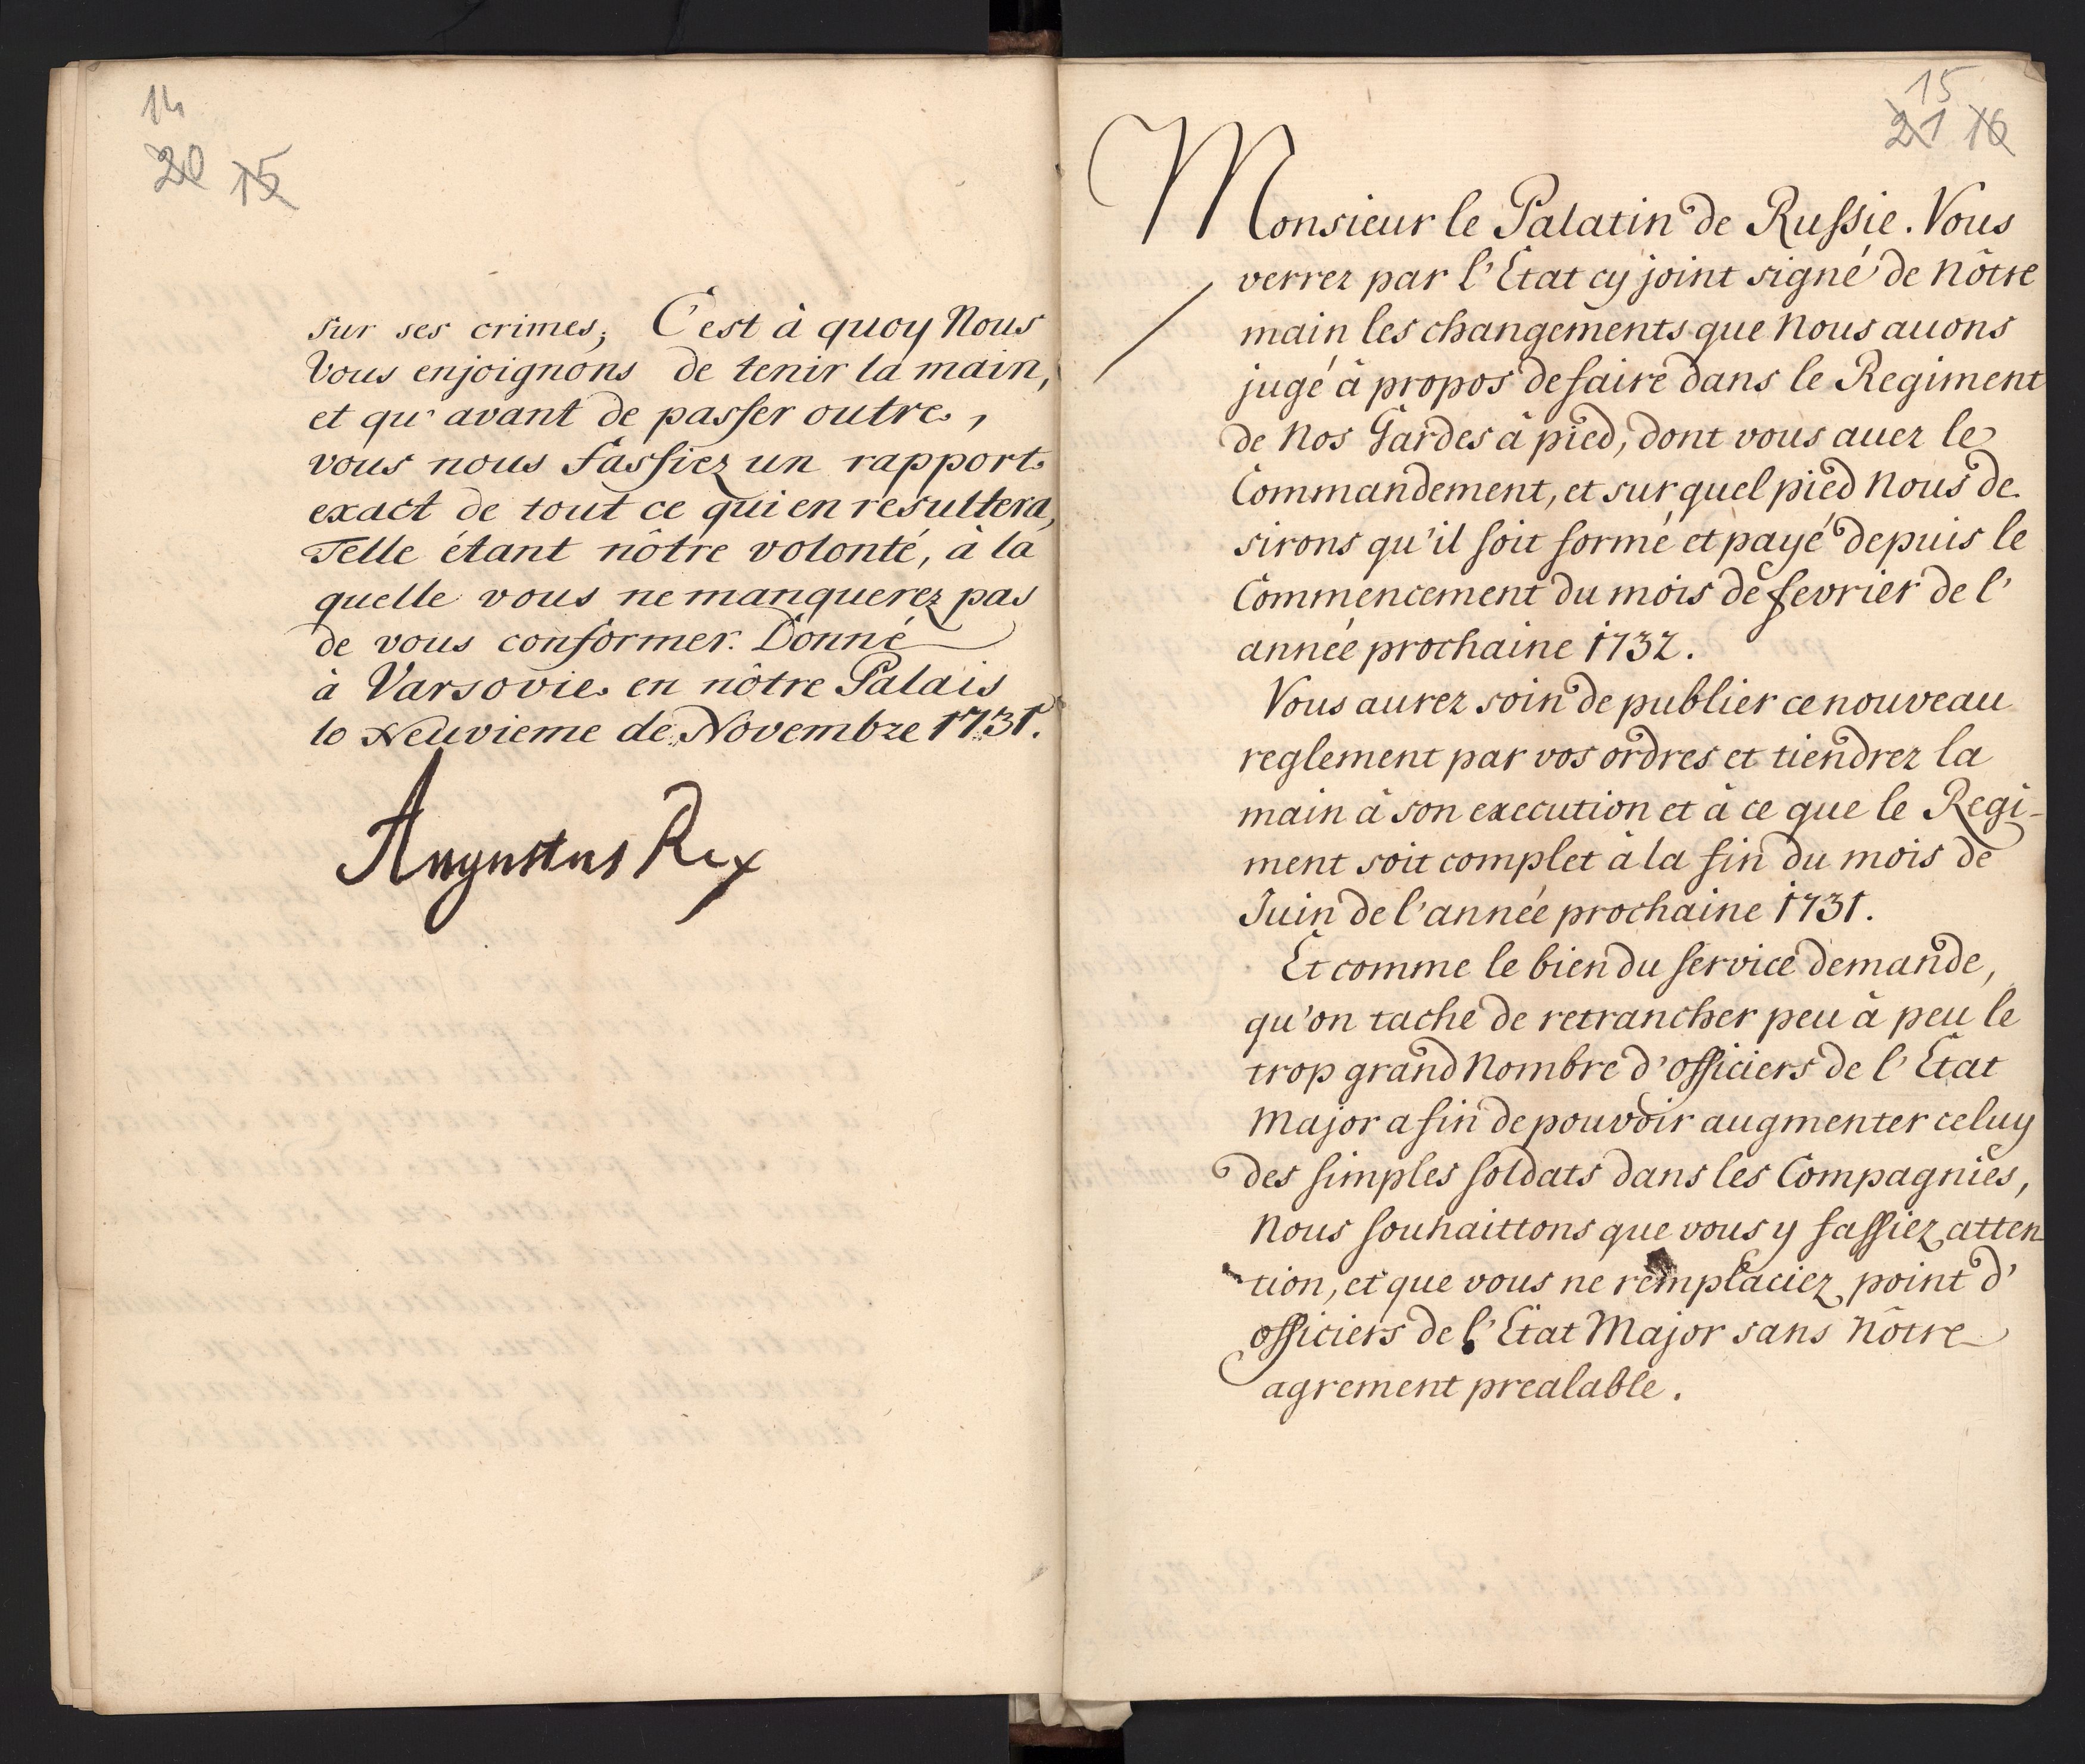 14
20 15
sur ses crimes; C'est à quoy Nous
Vous enjoignons de tenir la main,
et qu'avant de passer outre,
vous nous fassiez un rapport
exact de tout ce qui en resultera,
Telle étant nôtre volonté, à la
quelle vous ne manquerez pas
de vous conformer. Donné
à Varsovie en nôtre Palais
le Neuvieme de Novembre 1731.
Augustus Rex
15
21 16
Monsieur le Palatin de Russie. Vous
verrez par l'Etat cy joint signé de Nôtre
main les changements que Nous auons
jugé à propos de faire dans le Regiment
de Nos Gardes à pied, dont vous auez le
Commandement, et sur quel pied Nous de
sirons qu'il soit formé et payé depuis le
Commencement du mois de fevrier de l'
année prochaine 1732.
Vous aurez soin de publier ce nouveau
reglement par vos ordres et tiendrez la
main à son execution et à ce que le Regi-
ment soit complet à la fin du mois de
Juin de l'année prochaine 1731.
Et comme le bien du service demande,
qu'on tache de retrancher peu à peu le
trop grand Nombre d'officiers de l'Etat
Major afin de pouvoir augmenter celuy
des simples soldats dans les Compagnies,
Nous souhaittons que vous y fassiez atten
tion, et que vous ne remplaciez point d'
officiers de l'Etat Major sans Nôtre
agrement prealable.